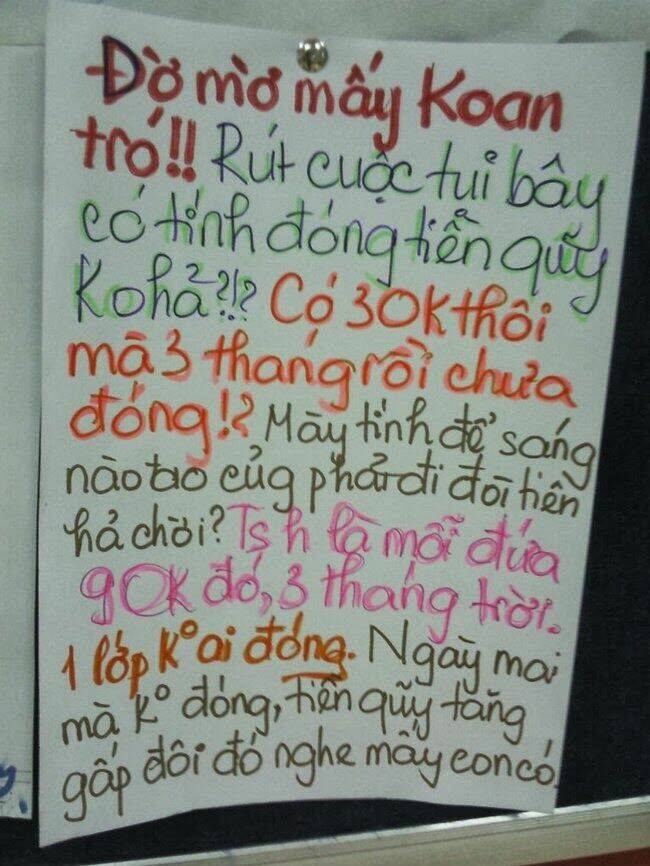 Đờ mờ mấy Koan
tró!! Rút cuộc tui bây
có tính đóng tiền quỹ
Ko hả?!? Có 30K thôi
mà 3 tháng rồi chưa
đóng!? Mày tính để sáng
nào tao củg phải đi đòi tiền
hả chời? Ts h là mỗi đứa
90K đó, 3 tháng trời.
1 lớp K° ai đóng. Ngày mai
mà K° đóng, tiền quỹ tăng
gấp đôi đó nghe mấy con có